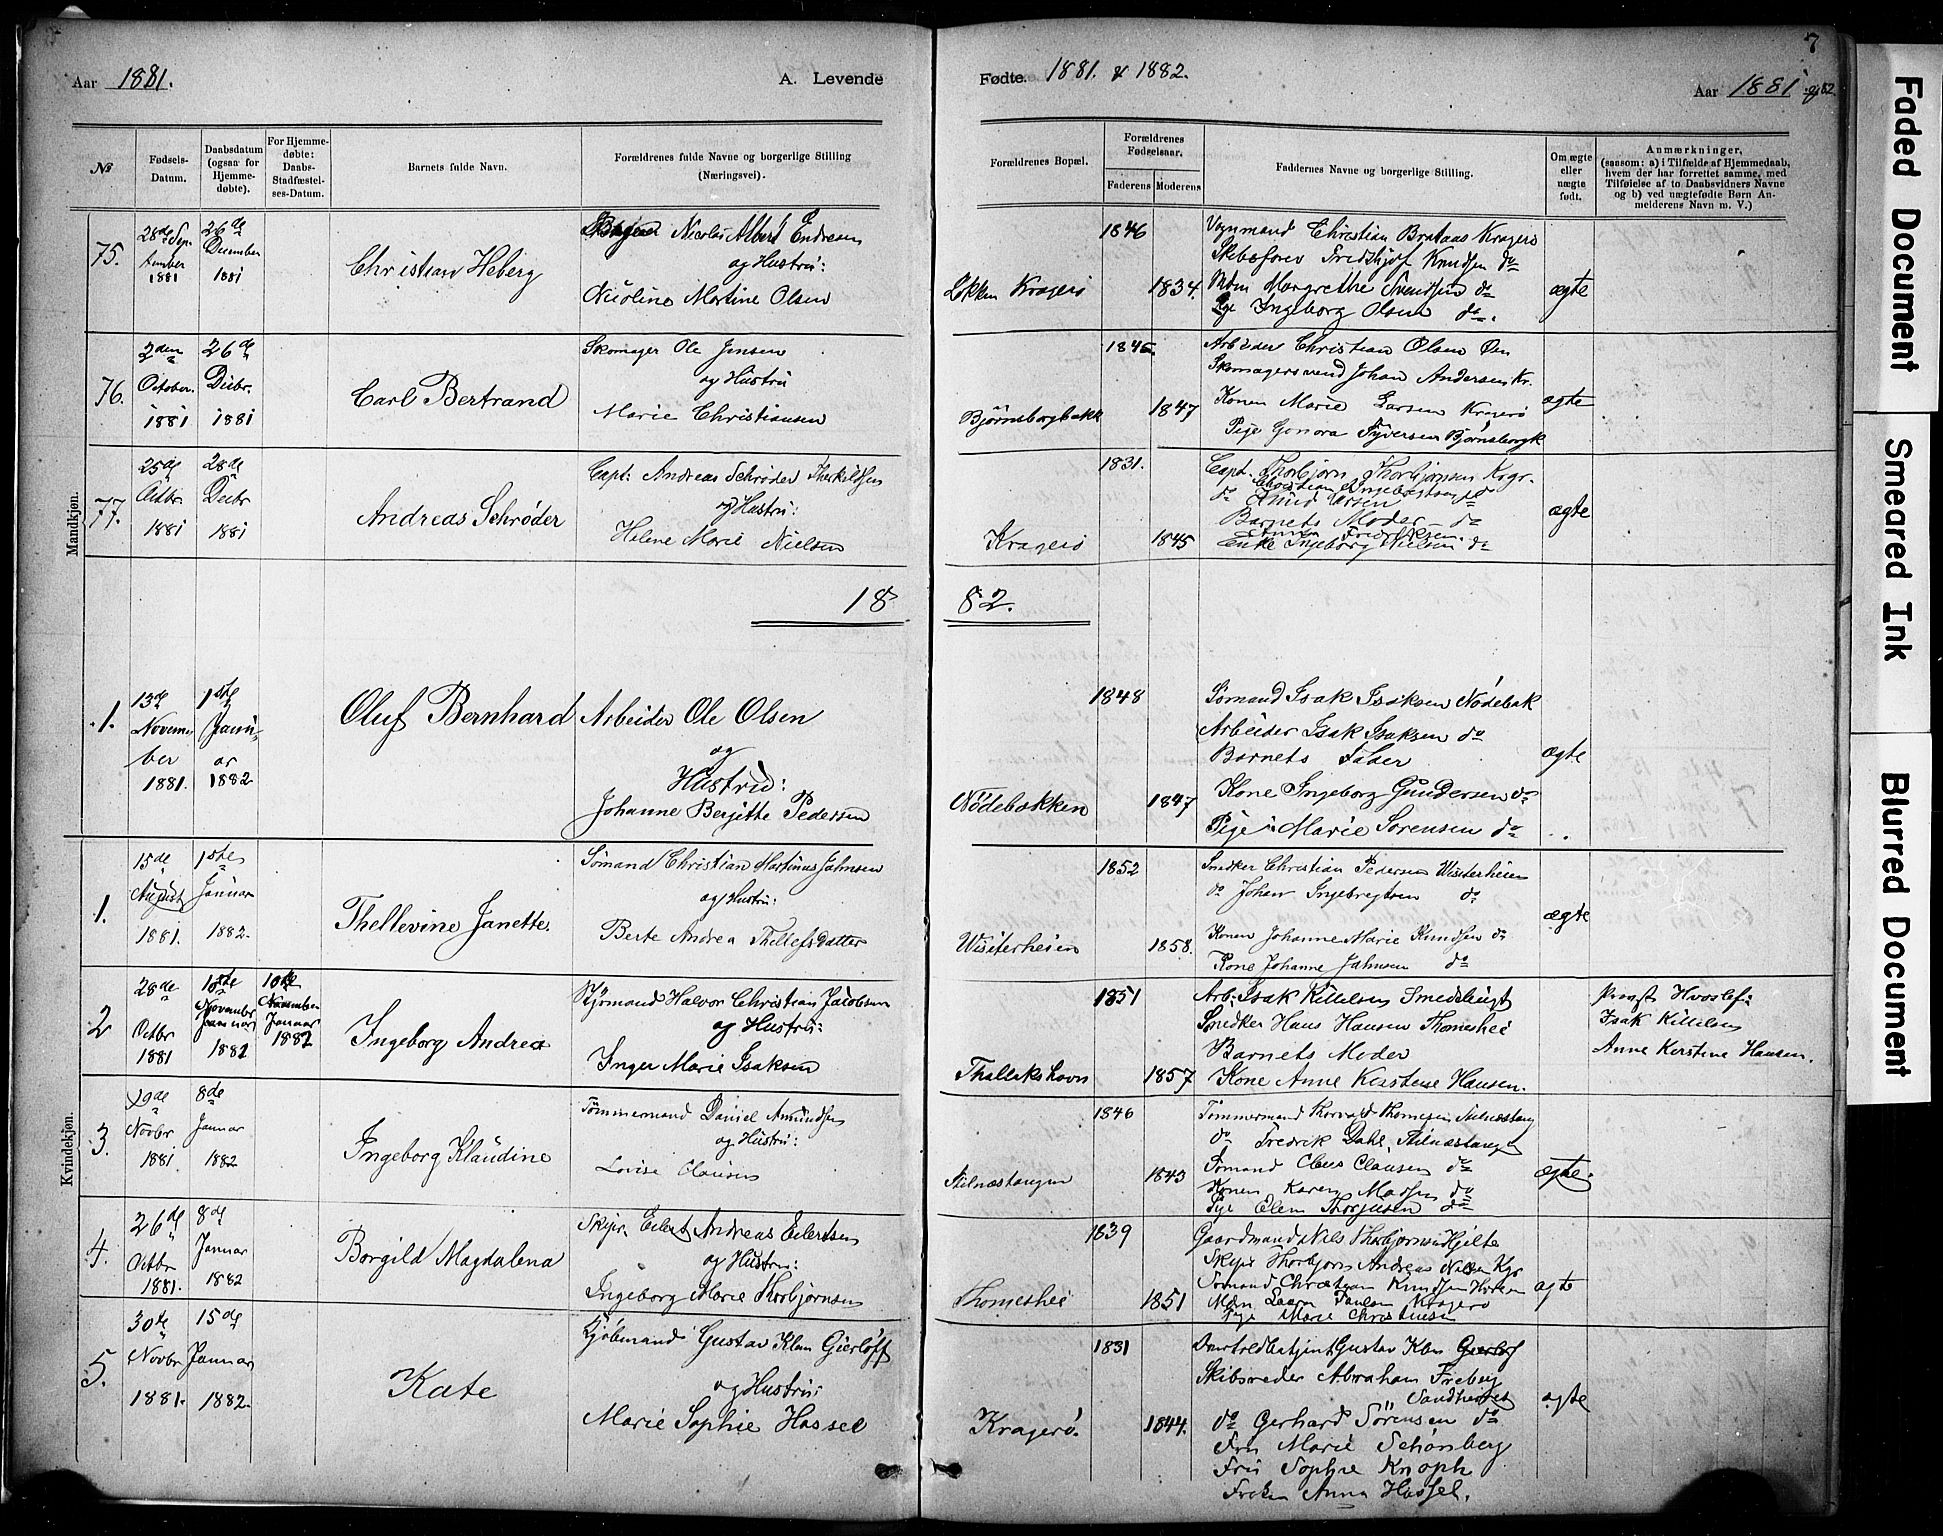 Aar 1881.
A. Levende
Fødte. 1881. & 1882.
7
Aar 1881 & 82
№
Fødsels-Datum.
Daabsdatum (ogsaa for Hjemme-døbte).
For Hjemme-døbte: Daabs-Stadfæstel-ses-Datum.
Barnets fulde Navn.
Forældrenes fulde Navne og borgerlige Stilling (Næringsvei).
Forældrenes Bopæl.
Forældrenes Fødselsaar.
Faderens
Moderens
Faddernes Navne og borgerlige Stilling.
Om ægte eller nægte født.
Anmærkninger,
(saasom: a) i Tilfælde af Hjemmedaab,
hvem der har forrettet samme, med
Tilføielse af to Daabsvidners Navne
og b) ved nægtefødte Børn An-
melderens Navn m. V.)
Mandkjøn.
75.
28de Sep-
tember
1881
26de
December
1881
Christian Heberg
Nicolai Albert Endresen
og Hustru:
Nicoline Martine Olsen
Løkken Kragerø
1846
1834.
Christian Brataas Kragerø
Fredthjof Knudsen do
Mdm Margrethe Svendsen do
Pige Ingeborg Olsen do.
ægte
76.
2den
October.
1881
26de
Decbr.
1881
Carl Bertrand
Skomager Ole Jensen
og Hustru
Marie Christiansen
Bjørnsborgbakk
1845.
1847
Arbeider Christian Olsen Øen
Skomagersvend Johan Andersen Kr.
Konen Marie Larsen Kragerø
Pige Gonora Syversen Bjørnsborgb
ægte
77.
25de
Octbr
1881
28de
Decbr
1881
Andreas Schrøder
Capt: Andreas Schrøder Therkildsen
og Hustru:
Helene Marie Nielsen
Kragerø
1831.
1845
Capt. Thorbjørn Thorbjørnsen Krgr.
Christian Ingebrigtsen do
do Knud
Barnets Moder - do
Fredriksen
Enke Ingeborg Nielsen do
ægte
18 82.
.1.
13de
Novem-
ber
1881.
1ste
Janu-
ar
1882
Oluf Bernhard
Arbeider Ole Olsen
og
Hustru:
Johanne Bergitte Pedersen
Nödebakken
1848
1847
Sømand Isak Isaksen Nödebak
Arbeider Isak Isaksen do
Barnets Fader
Kone Ingeborg Gundersen do
Pige Marie Sorensen do
ægte
Kvindekjøn.
1.
15de
August
1881.
1ste
Januar
1882.
Thellevine Janette
Sømand Christian Martinus Jahnsen
og Hustru:
Berte Andrea Thellefsdatter
Wisiterheien
1852
1858.
Snedker Christian Pedersen Wisiterheien
do Johan Ingebregtsen do
Konen Johanne Marie Knudsen do
Kone Johanne Jahnsen do
ægte
2
28de
Octbr
1881
10de
November
Januar
1882
10de
November
Januar
1882
Ingeborg Andrea
Styrmand Halvor Christian Jacobsen
og Hustru:
Inger Marie Isaksen
Thallakshavn
1851
1857
Arb: Isak Killelsen Smedsbugt
Snedker Hans Hansen Thomeshei
Barnets Moder
Kone Anne Kerstene Hansen.
Provst Hvoslef:
Isak Killelsen
Anne Kerstine Hansen.
3.
29de
Novbr
1881.
8de
Januar
1882
Ingeborg Klaudine
Tømmermand Daniel Amundsen
og Hustru:
Lovise Clausen
Stilnæstangen
1846
1843
Tømmermand Thorvald Thomesen Stilnæstang
do Fredrik Dahl Stilnæstangen
Sømand Claus Clausen do
Konen Karen Madsen do
Pige Elen Thorjusen do
ægte.
4.
26de
Octbr
1881.
8de
Januar
1882
Borgild Magdalena
Skipr. Eilert Andreas Eilertsen
og Hustru:
Ingeborg Marie Thorbjørnsen
Thomeshei
1839
1851
Gaardmand Nils Thorbjørnsen Hjelte
Skipr Thorbjørn Andreas Nilsen Kgr
Sømand Christian Knudsen
Mdm Laura Paulsen Kragerø
Pige Marie Christensen
ægte
5.
30te
Novbr
1881.
15de
Januar
1882.
Kate
Kjöbmand Gustav Klem Gierløff
og Hustru:
Marie Sophie Hassel
Kragerø.
1831
1844.
Gustav Klem Gierløf
Skibsreder Abraham Freberg
Sandhei
do Gerhard Sörensen do
Fru Marie Schönberg
Fru Sophie Knoph
Frøken Anna Hassel.
ægte
Faded Document
Smeared Ink
Blurred Document